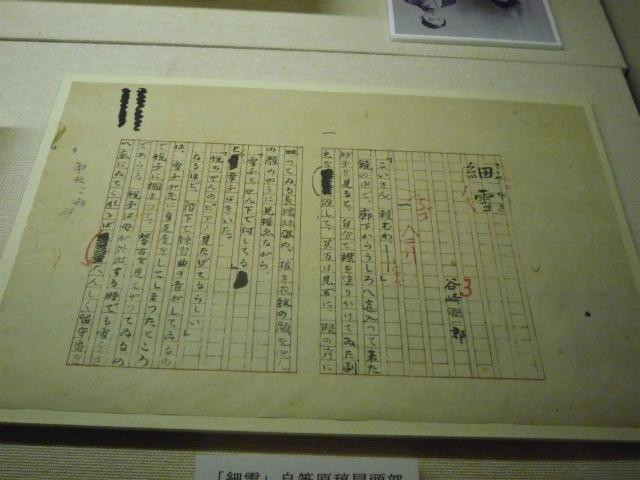 細雪
谷崎潤一郎
3
一
「こいさん、頼むわ。―」
鏡の中で、廊下からうしろへ這入つて来た
妙子を見ると、自分で襟を塗りかけてゐた刷
毛を渡して、其方は見ずに、眼の前に
映つてゐる長襦袢姿の、抜き衣紋の顔を他人
の顔のやうに見据ゑながら、
「雪子ちやん下で何してる」
と、幸子はきいた。
「悦ちやんのピアノ見たげてるらしい」
なるほど、階下で練習曲の音がしてゐるの
は、雪子が先に身支度をしてしまつたところ
で悦子に掴まつて、稽古を見てやつてゐるの
である。悦子は母が外出する時でも雪子さ
へ家にゐてくれゝば大人しく留守番を
「細雪」自筆原稿冒頭部